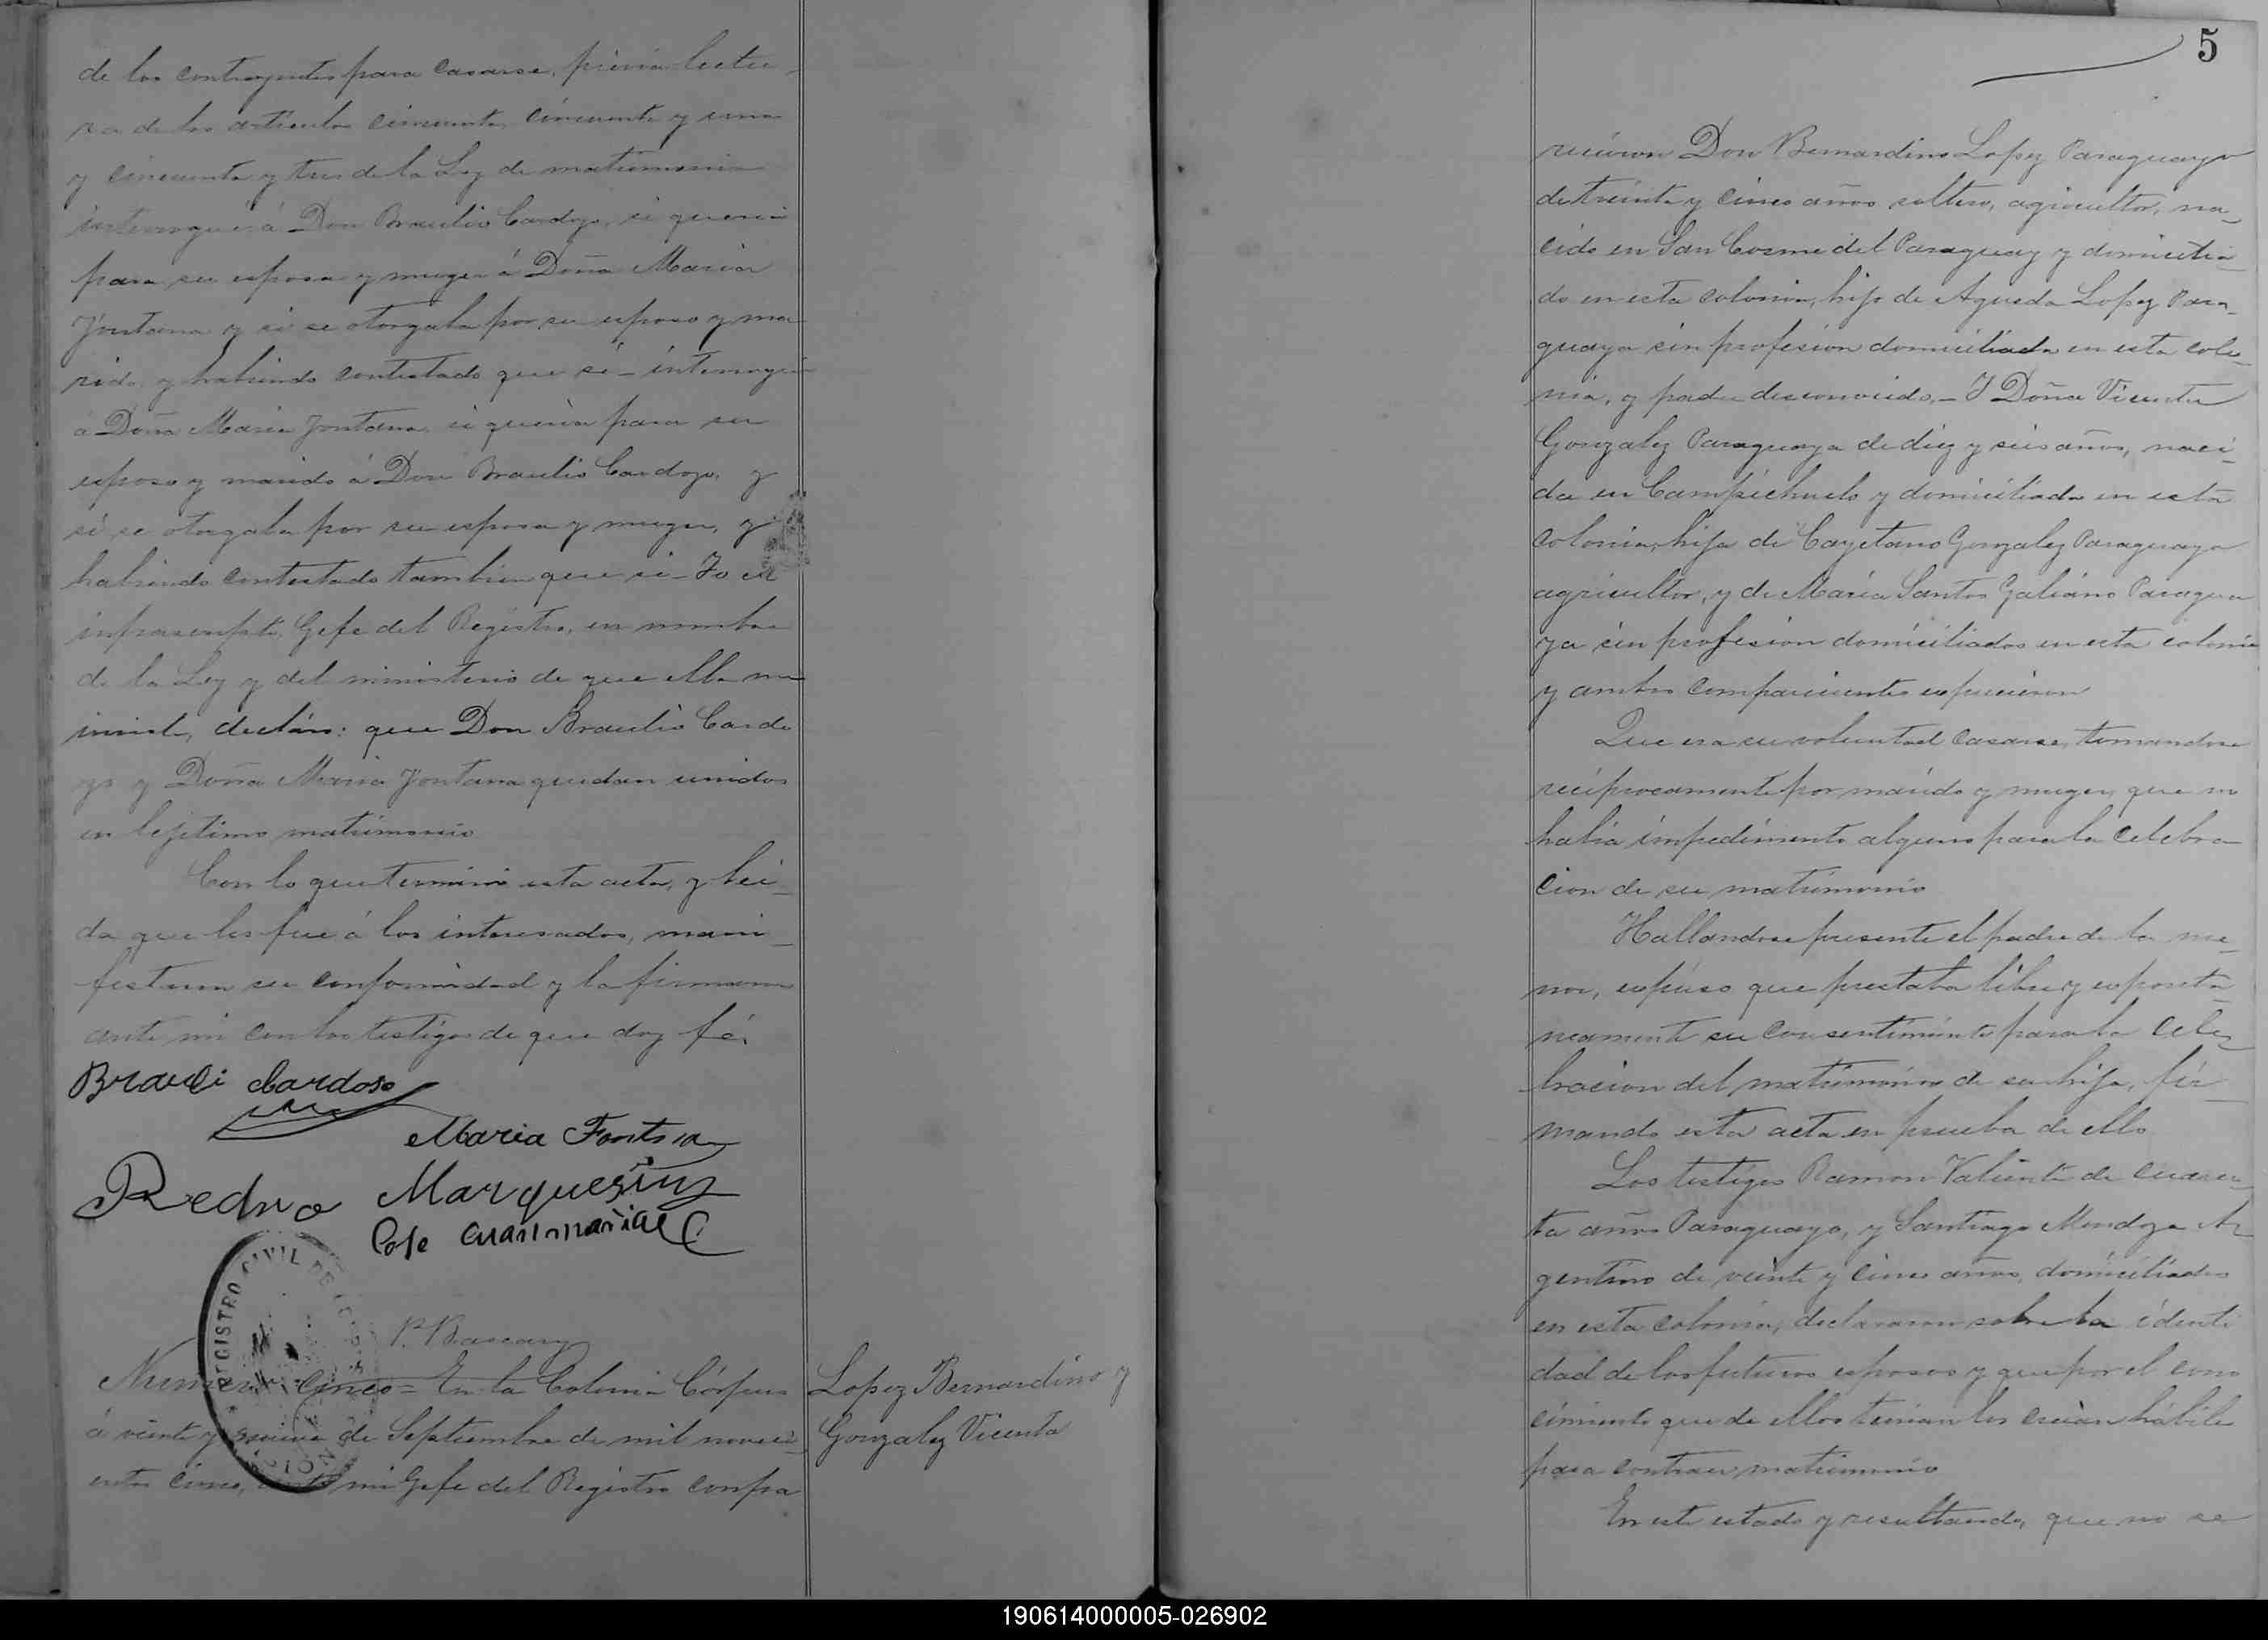 de los contrayentes para casarse, prévia lectu-
ra de los artículos cincuenta, cincuenta y uno
y cincuenta y tres de la Ley de matrimonio
interrogué á Don Braulio Cardozo, si queria
para su esposa y muger á Doña Maria
Fontana y si se otorgaba por su esposo y ma-
rido, y habiendo contestado que si_ interrogué
á Doña Maria Fontana, si queria para su
esposo y marido á Don Braulio Cardozo, y
si se otorgaba por su esposa y muger, y
habiendo contestado tambien que si_ Yo el
infrascripto, Gefe del Registro, en nombre
de la Ley y del ministerio de que ella me
inviste, declaro: que Don Braulio Cardo
zo y Doña Maria Fontana quedan unidos
en lejitimo matrimonio
Con lo que terminó esta acta, y lei_
da que les fué á los interesados, mani_
festaron su conformidad y la firmaron
ante mi con los testigos de que doy fé.
Brauli Cardoso
Maria Fontna
Pedro Marquesiny
Jose
REGISTRO CIVIL DE
P. Bascary
Numero Cinco = En la Colonia Córpus
á veinte y nueve de Septiembre de mil noveci_
entos cinco, ante mi Gefe del Registro compa
Lopez Bernardino y
Gonzalez Vicenta
5
recieron Don Bernardino Lopez Paraguayo
de treinta y cinco años soltero, agricultor, na_
cido en San Cosme del Paraguay y domicilia_
do en esta colonia, hijo de Agueda Lopez Para_
guaya sin profesion domiciliada en esta colo_
nia, y padre desconocido._ Y Doña Vicenta
Gonzalez Paraguaya de diez y seis años, naci_
da en Campichuelo y domiciliada en esta
colonia, hija de Cayetano Gonzalez Paraguayo
agricultor, y de Maria Santos Galiano Paragua
ya sin profesion domiciliados en esta colonia
y ambos comparecientes espusieron
Que era su voluntad casarse, tomandose
reciprocamente por marido y muger, que no
habia impedimento alguno para la celebra
cion de su matrimonio
Hallandose presente el padre de la me_
nor, espuso que prestaba libre y esponta_
neamente su consentimiento para la cele_
bracion del matrimonio de su hija, fir_
mando esta acta en prueba de ello
Los testigos Ramon Valiente de cuaren_
ta años Paraguayo, y Santiago Mendoza Ar_
gentino de veinte y cinco años, domiciliados
en esta colonia, declararon sobre la identi
dad de los futuros esposos y que por el cono
cimiento que de ellos tenian los creian hábiles
para contraer matrimonio
En este estado y resultando, que no se
190614000005-026902